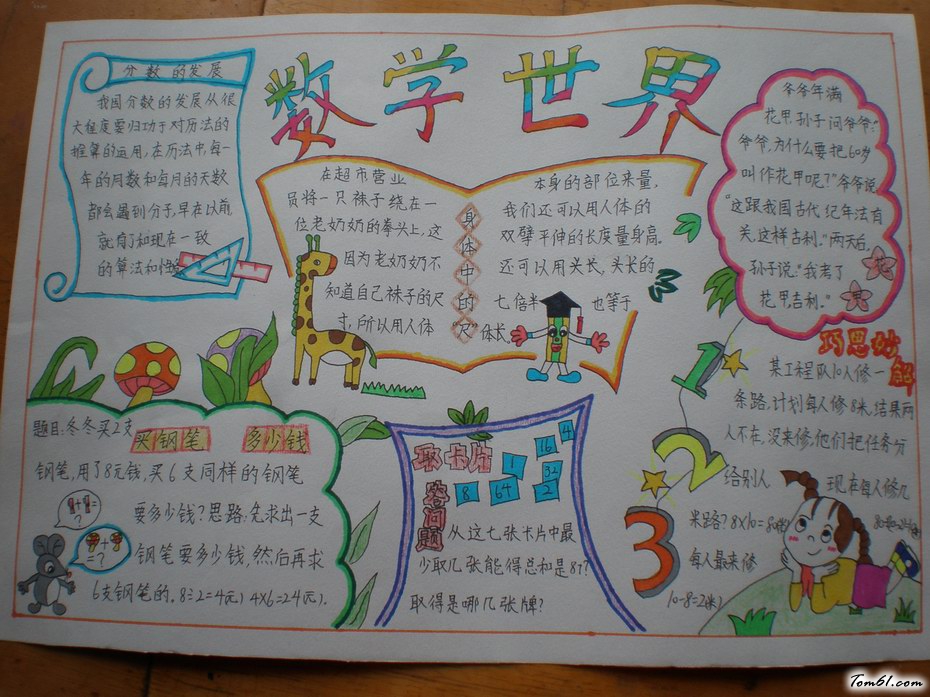 数学世界
分数的发展
我国分数的发展从很
大程度要归功于对历法的
推算的运用,在历法中,每一
年的月数和每月的天数
都会遇到分子,早在以前
就有了和现在一致
的算法和
在超市营业
员将一只袜子绕在一
位老奶奶的拳头上,这
因为老奶奶不
知道自己袜子的尺
寸,所以用人体
身体中的“尺”
本身的部位来量,
我们还可以用人体的
双臂平伸的长度量身高。
还可以用头长,头长的
七倍半 也等于
体长。
爷爷年满
花甲,孙子问爷爷:“
爷爷,为什么要把60岁
叫作花甲呢?”爷爷说:
“这跟我国古代纪年法有
关,这样吉利。”两天后,
孙子说:“我考了
花甲,吉利。”
买钢笔 多少钱
题目:冬冬买2支
钢笔,用了8元钱,买6支同样的钢笔
要多少钱?思路:先求出一支
钢笔要多少钱,然后再求
6支钢笔的。8÷2=4(元) 4×6=24(元)。
+ =?
+ =?
取卡片
答问题
1 16 4
8 64 32 2
从这七张卡片中最
少取几张能得总和是87?
取得是哪几张牌?
1
2
3
巧思妙解
某工程队10人修一
条路,计划每人修8米,结果两
人不在,没来修,他们把任务分
给别人 现在每人修几
米路?8×10=80(米)
每人最来修
10-8=2(米)
Tom61.com